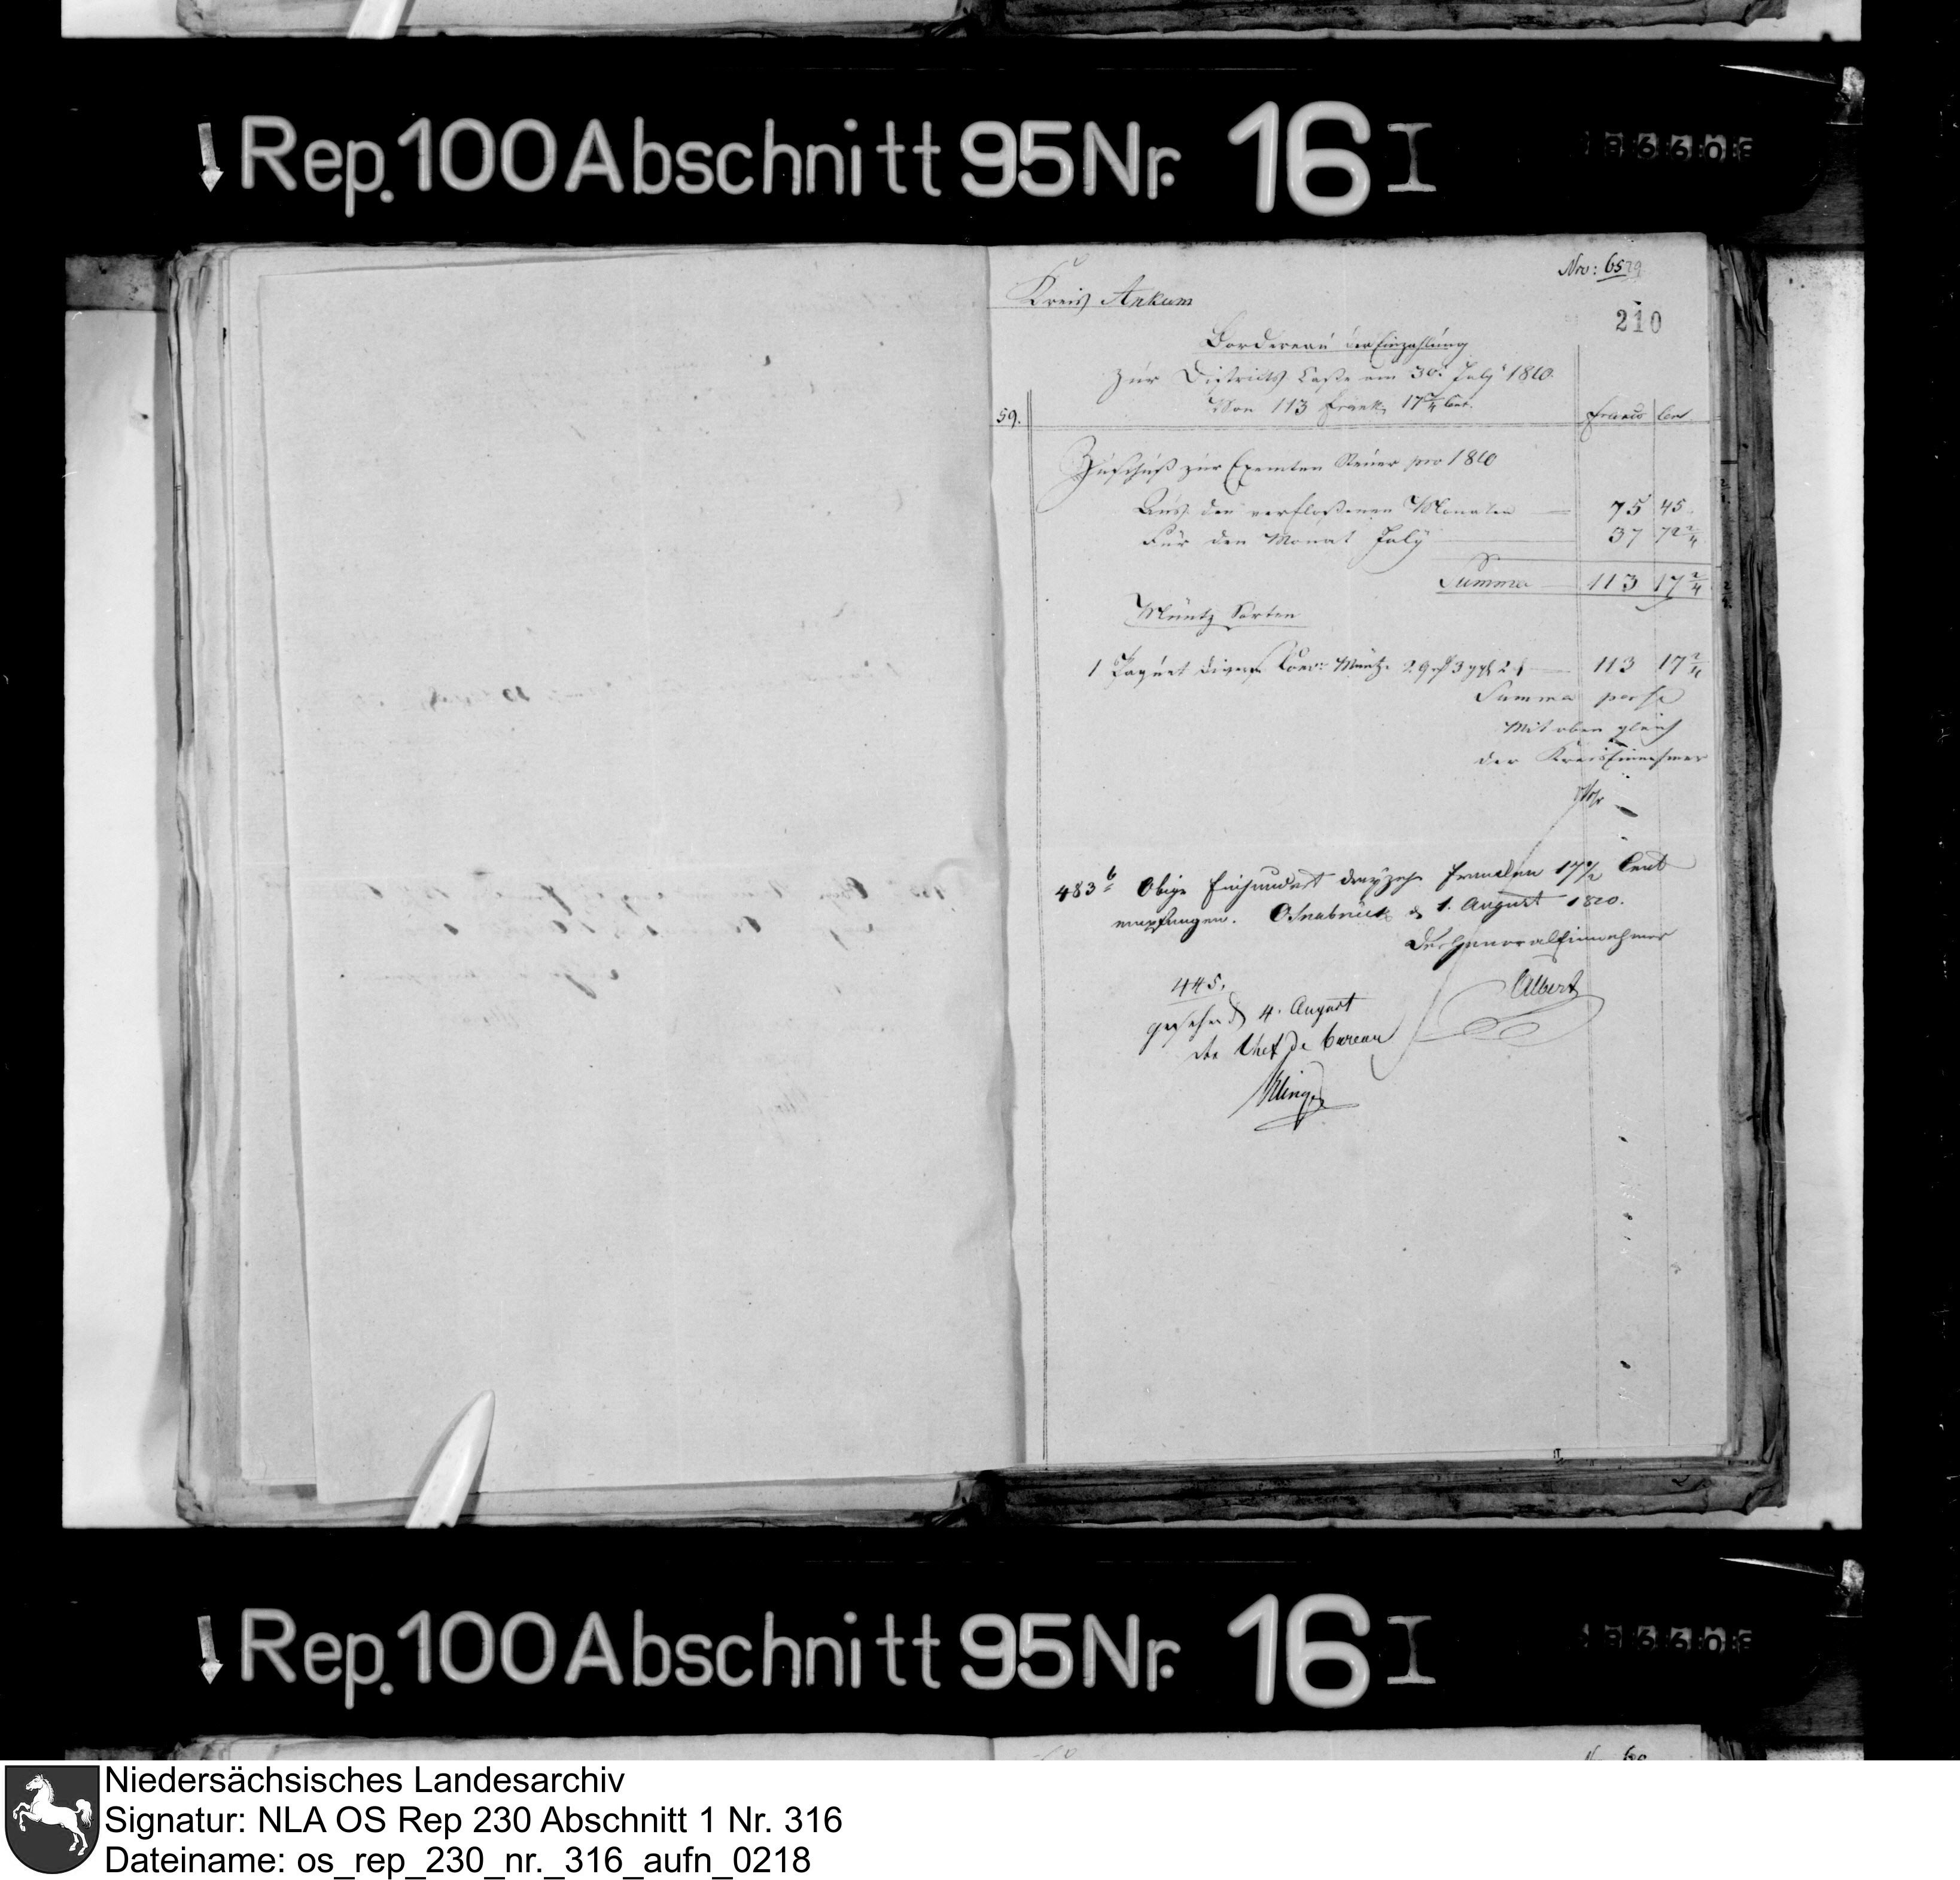 ↓ Rep. 100 Abschnitt 95 Nr. 16 I
Nro: 65
210
Kreis Ankum
Bordereau der Einzahlung
zur Districts Casse am 30. July 1810.
Von 113 Frank 17 2/4 Cent.
59.
Francs Cent
Zuschuß zur Exemten Steuer pro 1810
Aus den verfloßenen Monaten — 75 45
Für den Monat July 37 72 2/4
Summa — 113 17 2/4
Müntz Sorten
1 Paquet divers Conv: Müntze 29 rß 3 ggl 2 — 113 17 2/4
Summa per se
Mit oben gleich
der Kreis Einnehmer
483 b Obige Einhundert dreyzehn Franken 17 1/2 Cent
empfangen. Osnabrück d 1. August 1810.
Der General Einnehmer
Albert
445.
gesehen d 4. August
der Chef de bureau
Klinge
↓ Rep. 100 Abschnitt 95 Nr. 16 I
Niedersächsisches Landesarchiv
Signatur: NLA OS Rep 230 Abschnitt 1 Nr. 316
Dateiname: os_rep_230_nr._316_aufn_0218